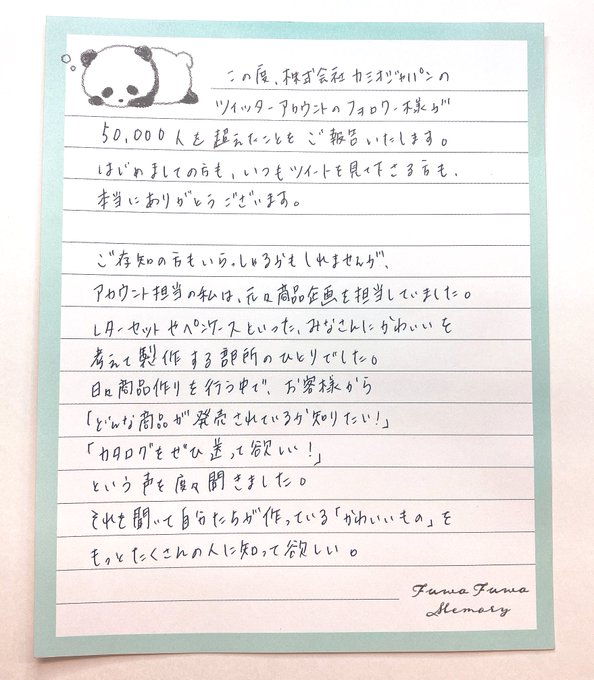 この度、株式会社カミオジャパンの
ツイッターアカウントのフォロワー様が
50,000人を超えたことをご報告いたします。
はじめましての方も、いつもツイートを見て下さる方も、
本当にありがとうございます。
ご存知の方もいらっしゃるかもしれませんが、
アカウント担当の私は、元々商品企画を担当していました。
レターセットやペンケースといった、みなさんにかわいいを
考えて製作する部所のひとりでした。
日々商品作りを行う中で、お客様から
「どんな商品が発売されているか知りたい!」
「カタログをぜひ送って欲しい!」
という声を度々聞きました。
それを聞いて自分たちが作っている「かわいいもの」を
もっとたくさんの人に知って欲しい。
Fuwa Fuwa
Memory